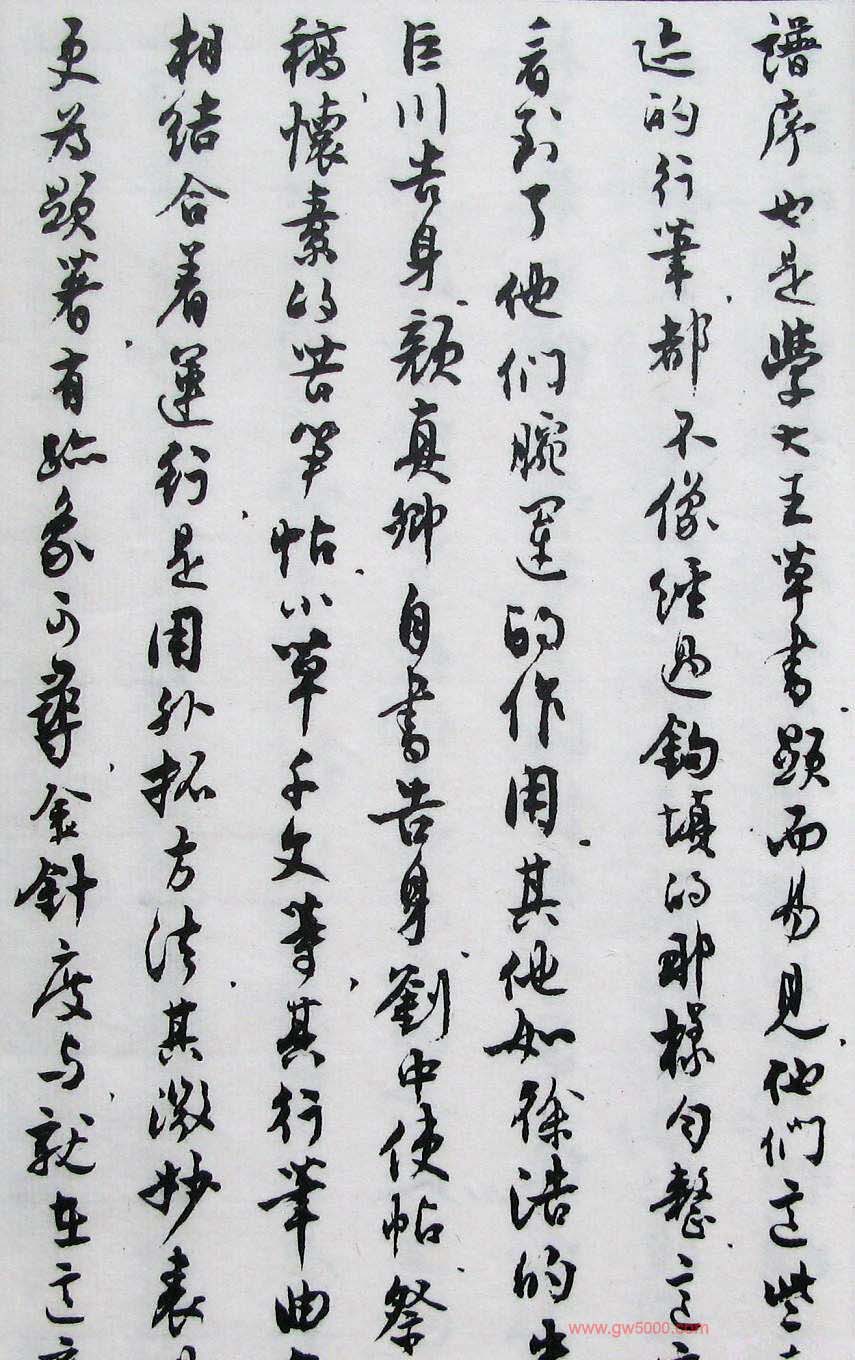 譜序也是學大王草書顯而易見他們這些
迹的行筆都不像經過鉤填的那樣勻整這
看到了他们腕運的作用其他如徐浩的朱
巨川告身顏真卿自書告身劉中使帖祭
稿懷素的苦笋帖小草千文等其行筆曲
相結合着運行是用外拓方法其微妙表
更為顯著有跡象可尋金針度与就在這
www.gw5000.com